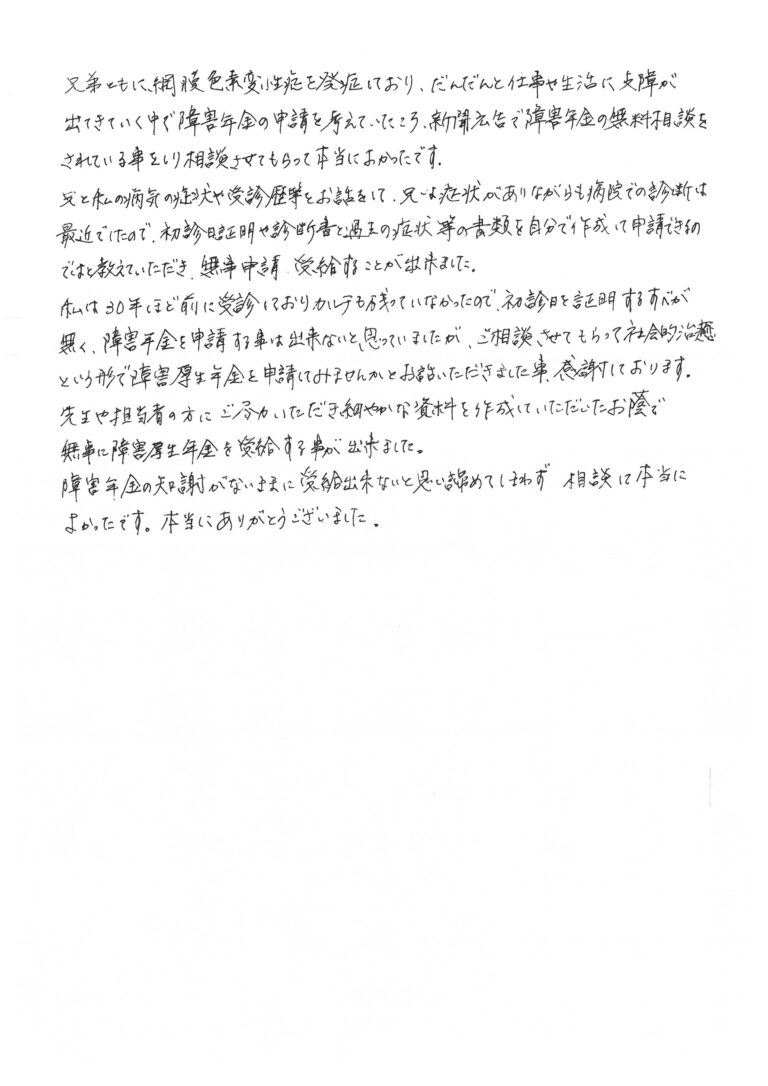 兄弟ともに、網膜色素変性症を発症しており、だんだんと仕事や生活に支障が
出てきていく中で障害年金の申請を考えていたころ、新聞広告で障害年金の無料相談を
されている事をしり相談させてもらって本当によかったです。
兄と私の病気の症状や受診歴等をお話をして、兄は症状がありながらも病院での診断は
最近でしたので、初診日証明や診断書と過去の症状等の書類を自分で作成して申請できるの
ではと教えていただき、無事申請、受給することが出来ました。
私は30年ほど前に受診しておりカルテも残っていなかったので、初診日を証明するすべが
無く、障害年金を申請する事は出来ないと思っていましたが、ご相談させてもらって社会的治癒
という形で障害厚生年金を申請してみませんかとお話いただきました事、感謝しております。
先生や担当者の方にご尽力いただき細やかな資料を作成していただいたお蔭で
無事に障害厚生年金を受給する事が出来ました。
障害年金の知謝がないままに受給出来ないと思い諦めてしまわず 相談して本当に
よかったです。本当にありがとうございました。